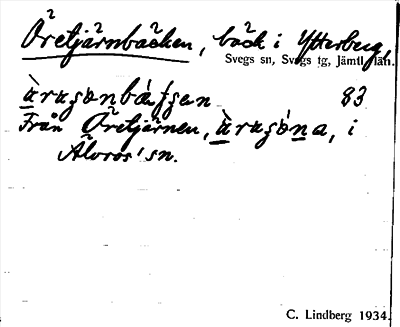 Öretjärnbäcken, bäck i Ytterberg,
Svegs sn, Svegs tg, Jämtl. län.
83
Från Öretjärnen, i
Älvros sn.
C. Lindberg 1934.